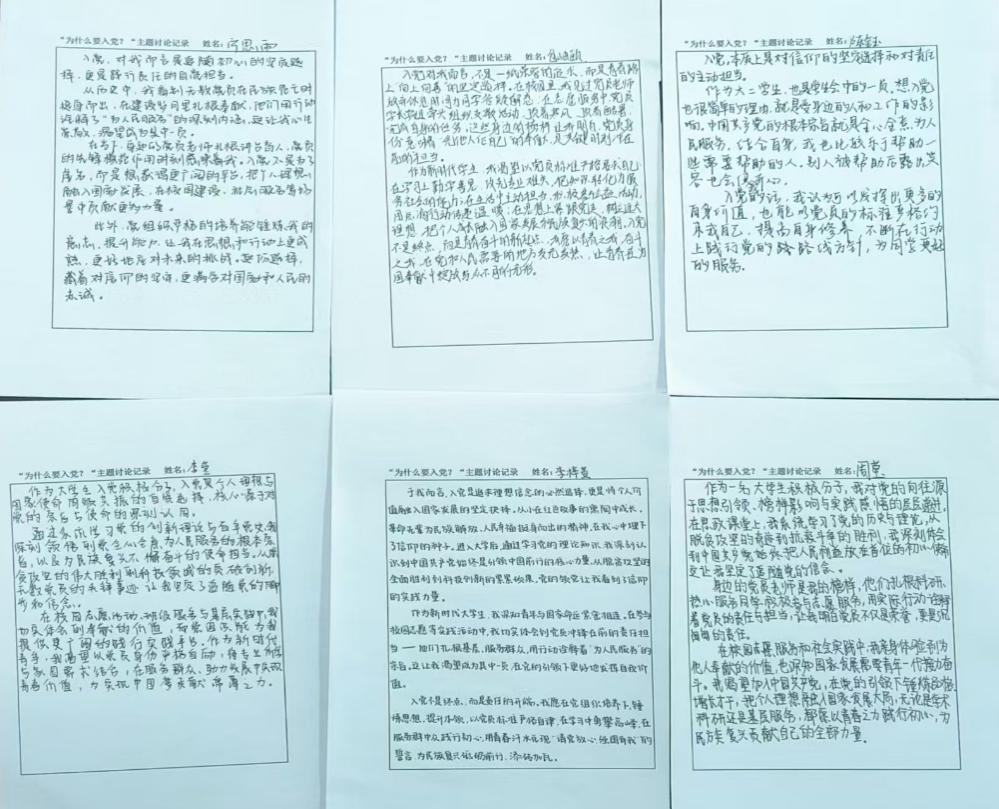 "为什么要入党？"主题讨论记录 姓名：
入党，对我而言是追随初心的坚定选
择，更是践行责任的自觉担当。
从历史中，我看到无数党员在民族危亡时
挺身而出，在建设岁月里扎根奉献，他们用行动
诠释了"为人民服务"的深刻内涵，更让我心生
敬仰，渴望成为其中一员。
在当下，身边的党员老师扎根讲台育人，党员
的先锋模范作用时刻感染着我。入党不是为了
荣名，而是想获得更广阔的平台，把个人理想
融入国家发展，在校园建设、社会服务等场
景中贡献更多力量。
此外，党组织严格的培养能锤炼我的
意志，提升能力，让我在思想和行动上更成
熟，更好地应对未来的挑战。这份选择，
藏着对信仰的坚守，更饱含对国家和人民的
赤诚。
"为什么要入党？"主题讨论记录 姓名：
入党对我而言，不是一纸荣誉的追求，而是青春路
上"向上向善"的坚定选择。在校园里，我见过党员老师
放弃休息时间为同学答疑解惑，在志愿服务中，党员
学长学姐带头组织支教活动
完成自身的任务，这些身边的榜样让我明白，党员身
作为新时代学生，我渴望以党员标准严格要求自己
在学习上勤学善思，攻克专业难关，把知识转化为服
务社会的能力；在生活中主动担当，积极参与公益活动，
用点滴行动传递温暖；在思想上紧跟党走，树立远大
理想，把个人成长融入国家发展和民族复兴的浪潮。入党
不是终点，而是青春奋斗的新起点，我愿以青春之我，奋斗
之我，在党和人民需要的地方发光发热，让青春在为
国奉献中绽放出
"为什么要入党？"主题讨论记录 姓名：
入党，本质上是对信仰的坚定选择和对责任
的主动担当。
作为大二学生，也是学生会中的一员，想入党
也很简单的理由，就是受身边的人和工作的影
响。中国共产党的根本宗旨就是全心全意为人
民服务，结合自身，我也比较乐于帮助一
些需要帮助的人，别人被帮助后露出笑
容也会很开心。
入党的话，我认为可以发挥出更多的
自身价值，也能以党员的标准严格约
束我自己，提高自身修养，不断在行动
上践行党的路路线方针，为同学更好
的服务。
"为什么要入党？"主题讨论记录 姓名：李莹
作为大学生入党积极分子，入党是个人理想与
国家使命同频共振的自觉选择，核心源于对
党的宗旨与使命的深刻认同。
通过系统学习党的创新理论与百年党史，我
深刻领悟到党全心全意为人民服务的根本宗
旨，以及为民族复兴不懈奋斗的使命担当。从脱
贫攻坚的伟大胜利到科技领域的突破创新，
无数党员的先锋事迹，让我坚定了追随党的脚
步和信念。
在校园志愿活动、班级服务与基层实践中，我
切实体会到奉献的价值，而党组织能为我
提供更广阔的践行实践平台。作为新时代
青年，我渴望以党员身份严格自律，将专业所学
与家国需求结合，在服务群众、助力发展中实现
青春价值，为实现中国梦贡献青春之力。
"为什么要入党？"主题讨论记录 姓名：李梓萱
于我而言，入党是追求理想信念的必然选择，更是将个人价
值融入国家发展的坚定抉择。从小在红色故事的熏陶中成长，
革命先辈为民族解放、人民幸福挺身而出的精神，在我心中埋下
了信仰的种子。进入大学后，通过学习党的理论知识，我深刻认
识到中国共产党始终是引领中国前行的核心力量，从脱贫攻坚的
全面胜利到科技创新的累累硕果，党的领导让我看到了信仰
的实践力量。
作为新时代大学生，我深知青年与国家命运紧密相连。在参与
校园志愿等实践活动中，我切实体会到党员冲在前的责任担
当——他们扎根基层、服务群众，用行动诠释着"为人民服务"的
宗旨。这让我渴望成为其中一员，在党的引领下更好地实现自我价
值。
入党不是终点，而是责任的开端。我愿在党组织培养下，锤
炼思想、提升本领，以党员标准严格自律，在学习中勇攀高峰，在
服务群众中践行初心，用青春汗水兑现"请党放心，强国有我"的
誓言，为民族复兴砥砺前行、添砖加瓦。
"为什么要入党？"主题讨论记录 姓名：周草
作为一名大学生积极分子，我对党的向往源
于思想引领、榜样影响与实践感悟的层层递进。
在思政课堂上，我系统学习了党的历史与理论，从
脱贫攻坚的奇迹到抗疫斗争的胜利，我深刻体会
到中国共产党始终把人民利益放在首位的初心使命，
这让我坚定了追随党的信念。
身边的党员老师是我的榜样，他们扎根科研、
热心服务同学，积极参与志愿服务，用实际行动诠释
着党员的责任与担当，让我明白党员不仅是荣誉，更是沉
甸甸的责任。
在校园志愿服务和社会实践中，我亲身体验到为
他人奉献的价值，也深知国家发展需要青年一代接力奋
斗。我渴望加入中国共产党，在党的引领下锤炼品格、
增长才干，把个人理想融入国家发展大局，无论是学术
科研还是基层服务，都愿以青春之力践行初心，为
民族复兴贡献自己的全部力量。